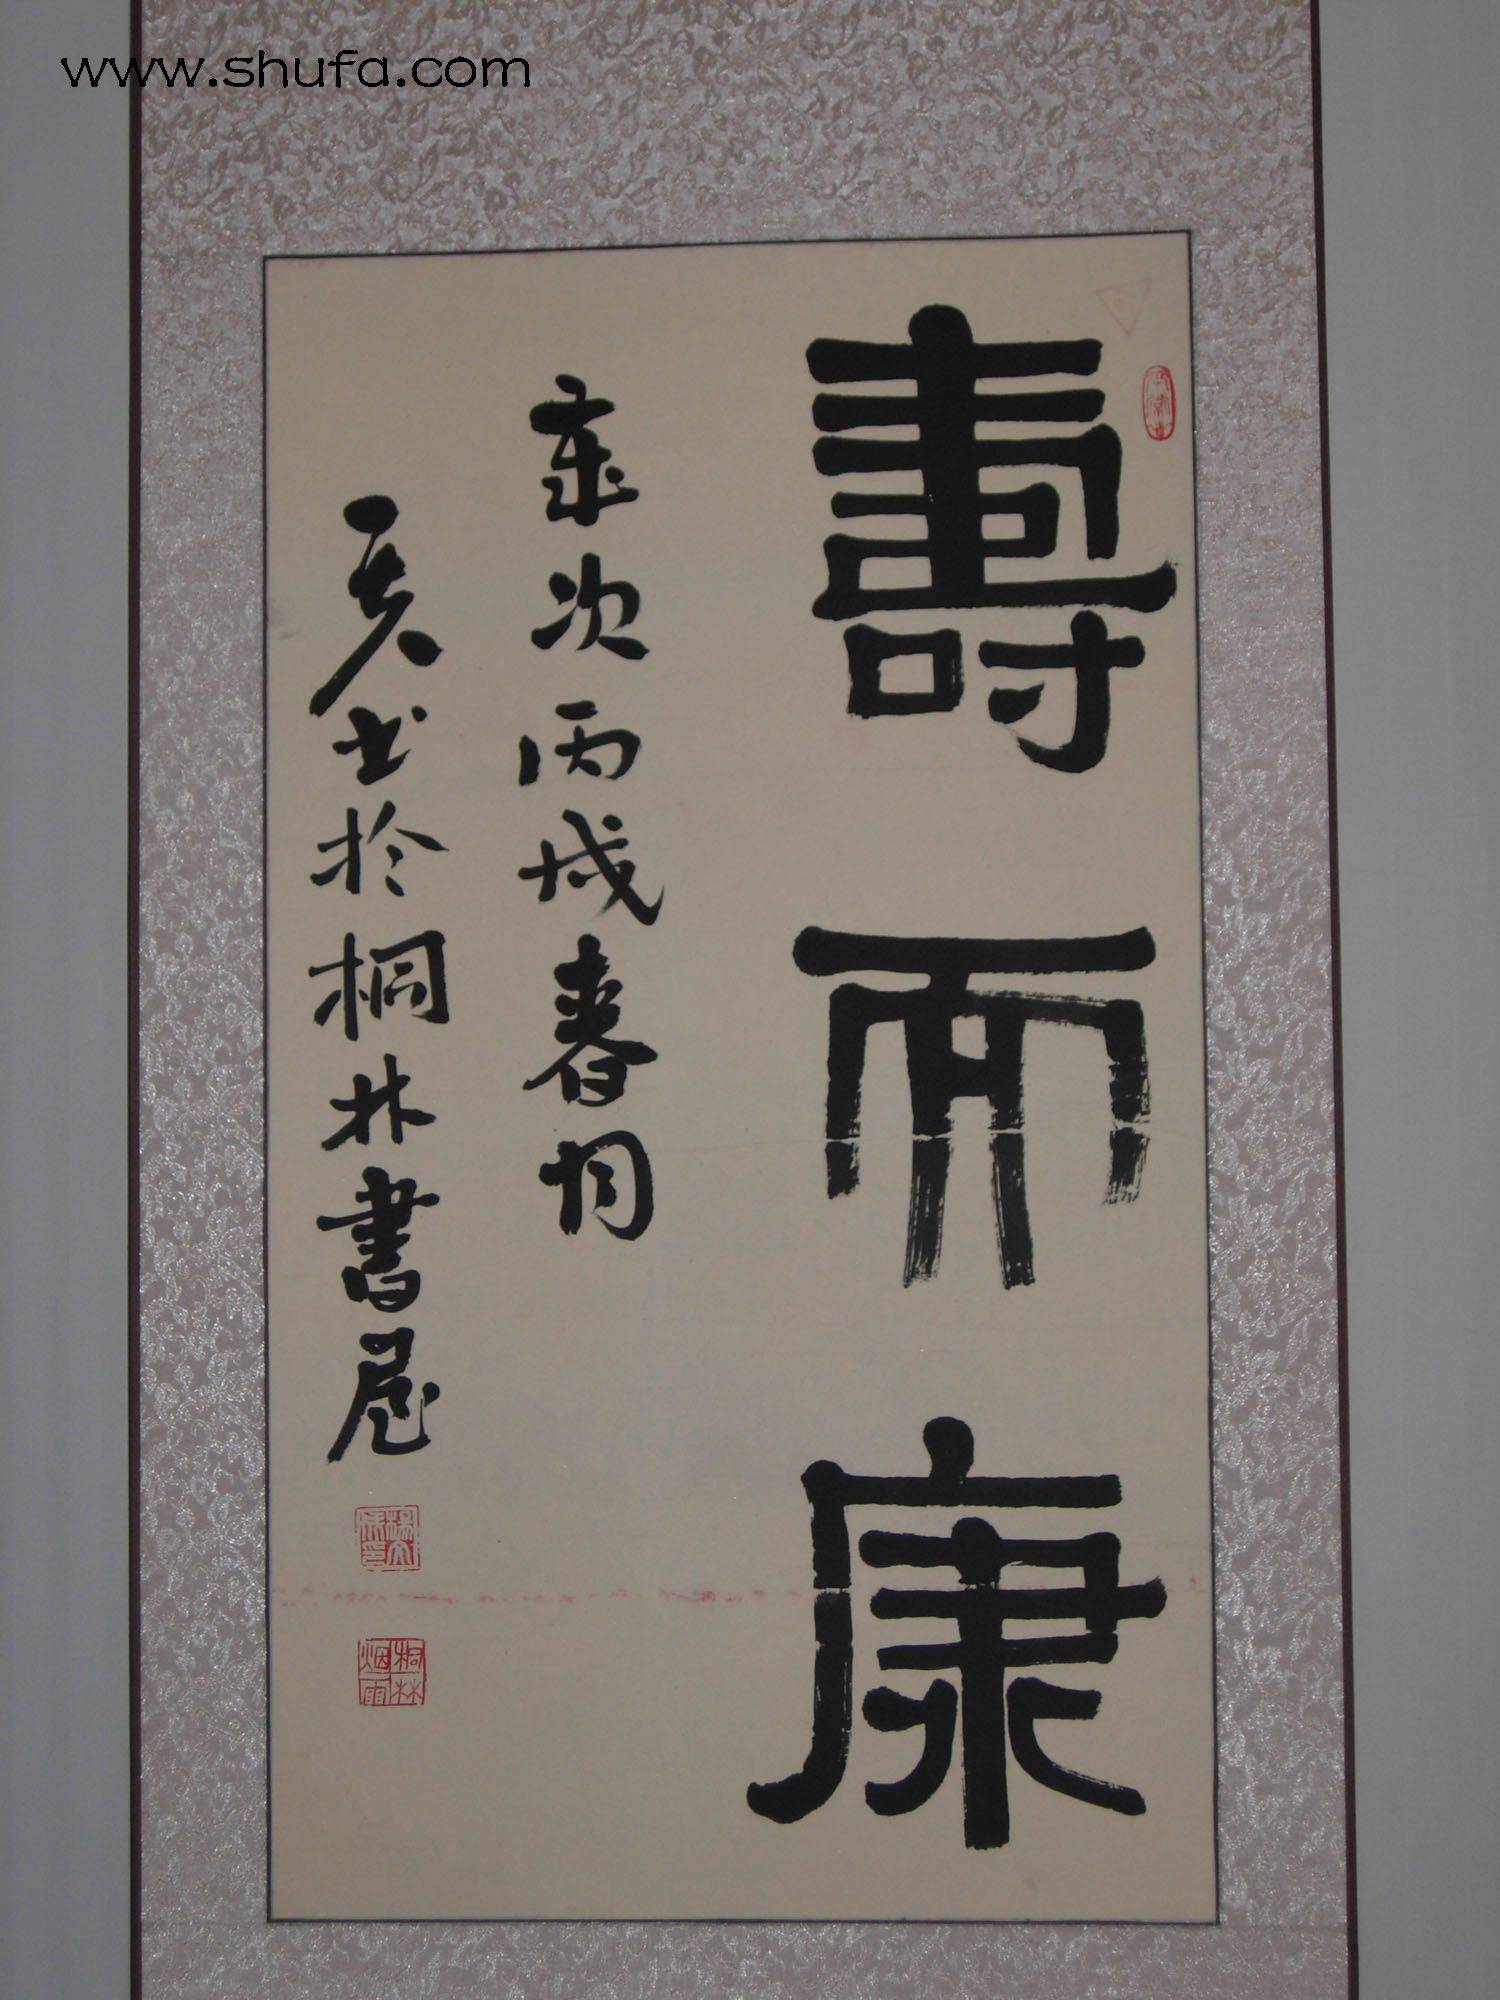 www.shufa.com
壽而康
歲次丙戌春月
吴□书於桐林書屋
桐林烟雨